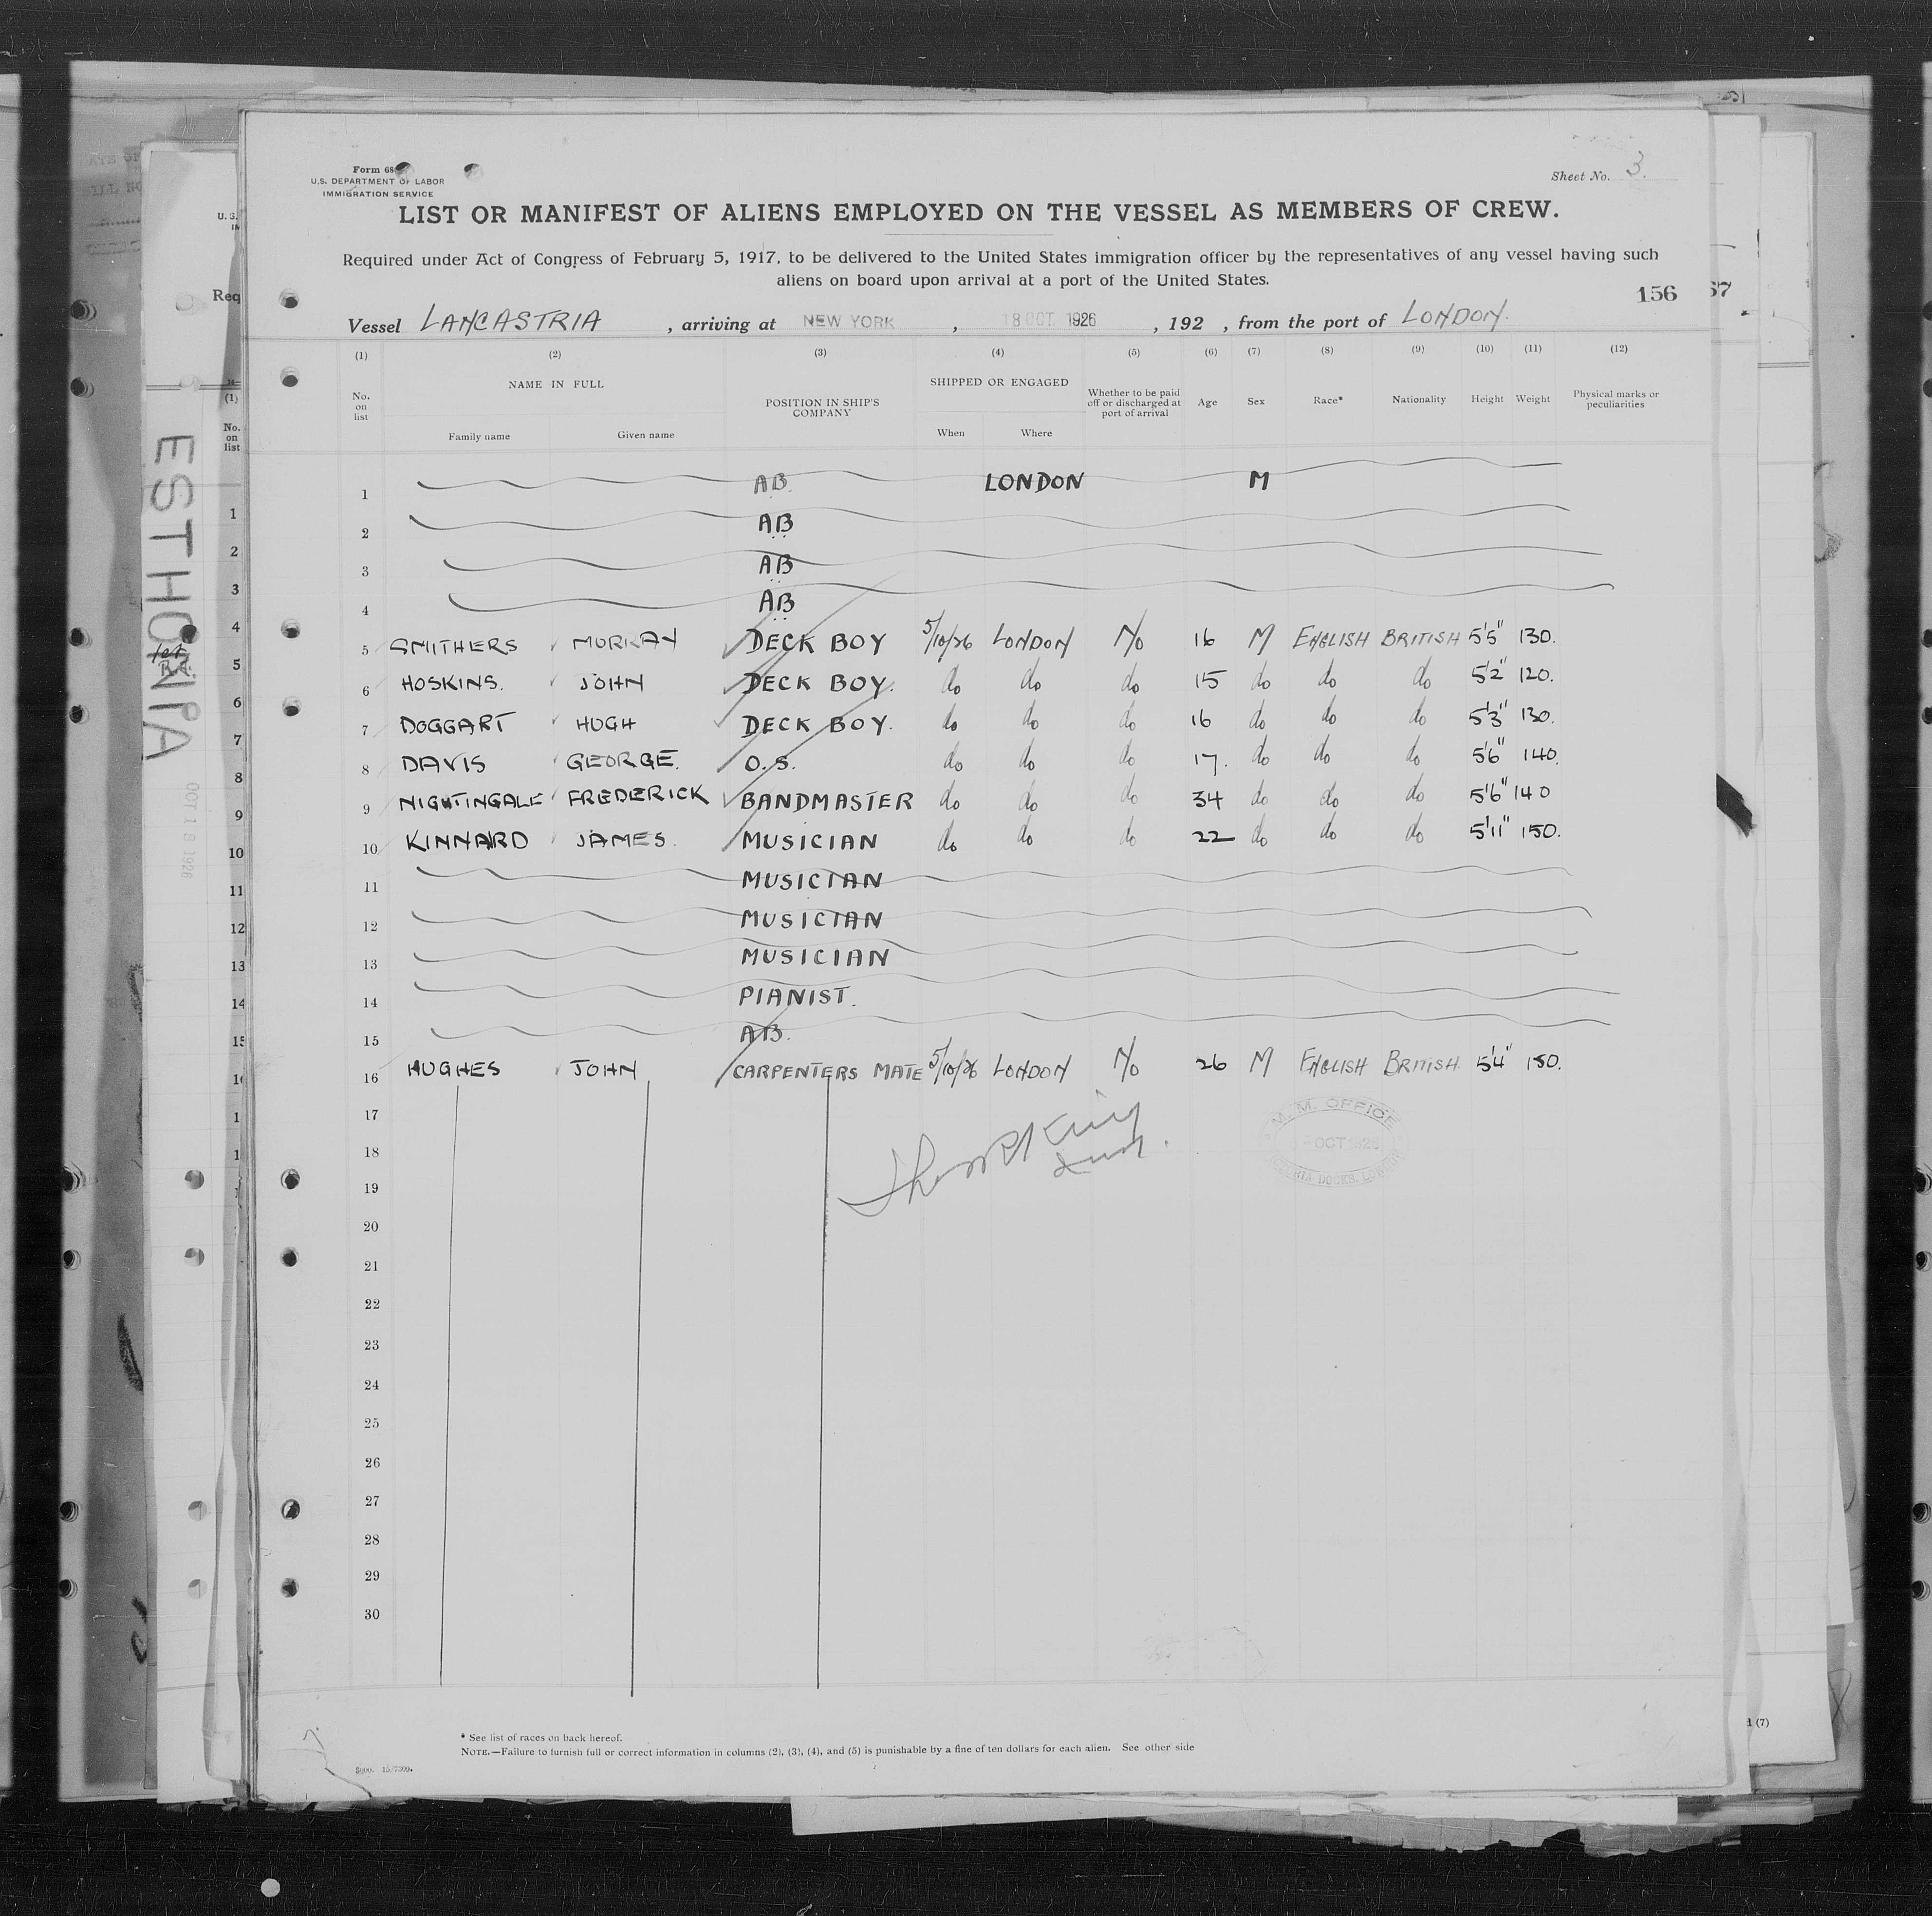 Form 68
U.S. DEPARTMENT OF LABOR
IMMIGRATION SERVICE
Sheet No. 3.
LIST OR MANIFEST OF ALIENS EMPLOYED ON THE VESSEL AS MEMBERS OF CREW.
Required under Act of Congress of February 5, 1917, to be delivered to the United States immigration officer by the representatives of any vessel having such
aliens on board upon arrival at a port of the United States.
156
67
Vessel LANCASTRIA, arriving at NEW YORK, 18 OCT 1926, 192 , from the port of LONDON.
(1) (2) (3) (4) (5) (6) (7) (8) (9) (10) (11) (12)
No. on list NAME IN FULL Family name Given name POSITION IN SHIP'S COMPANY SHIPPED OR ENGAGED When Where Whether to be paid off or discharged at port of arrival Age Sex Race* Nationality Height Weight Physical marks or peculiarities
1 AB. LONDON M
2 AB
3 AB
4 AB
5 SMITHERS MURRAY DECK BOY 5/10/26 LONDON No 16 M ENGLISH BRITISH 5'5" 130.
6 HOSKINS. JOHN DECK BOY. do do do 15 do do do 5'2" 120.
7 DOGGART HUGH DECK BOY. do do do 16 do do do 5'3" 130.
8 DAVIS GEORGE. O.S. do do do 17. do do do 5'6" 140.
9 NIGHTINGALE FREDERICK BANDMASTER do do do 34 do do do 5'6" 140
10 KINNARD JAMES. MUSICIAN do do do 22 do do do 5'11" 150.
11 MUSICIAN
12 MUSICIAN
13 MUSICIAN
14 PIANIST.
15 AB.
16 HUGHES JOHN CARPENTERS MATE 5/10/26 LONDON No 26 M ENGLISH BRITISH 5'4" 150.
17
18
19
20
21
22
23
24
25
26
27
28
29
30
M. M. OFFICE
OCT 1926
DOCKS, LONDON
* See list of races on back hereof.
NOTE.—Failure to furnish full or correct information in columns (2), (3), (4), and (5) is punishable by a fine of ten dollars for each alien. See other side
ESTHONIA
OCT 18 1926
U.S.
Req
(1)
No.
on
list
1
2
3
4
5
6
7
8
9
10
11
12
13
14
15
(7)